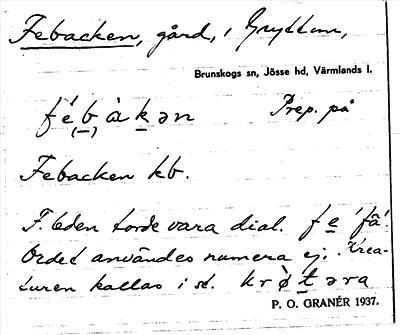 Febacken, gård, i Gryttom,
Brunskogs sn, Jösse hd, Värmlands l.
fé(b)àkən Prep. på
Febacken kb.
F. leden torde vara dial. fe 'fä'.
Ordet användes numera ej. Krea-
turen kallas i st. krø̀təra
P. O. GRANÉR 1937.